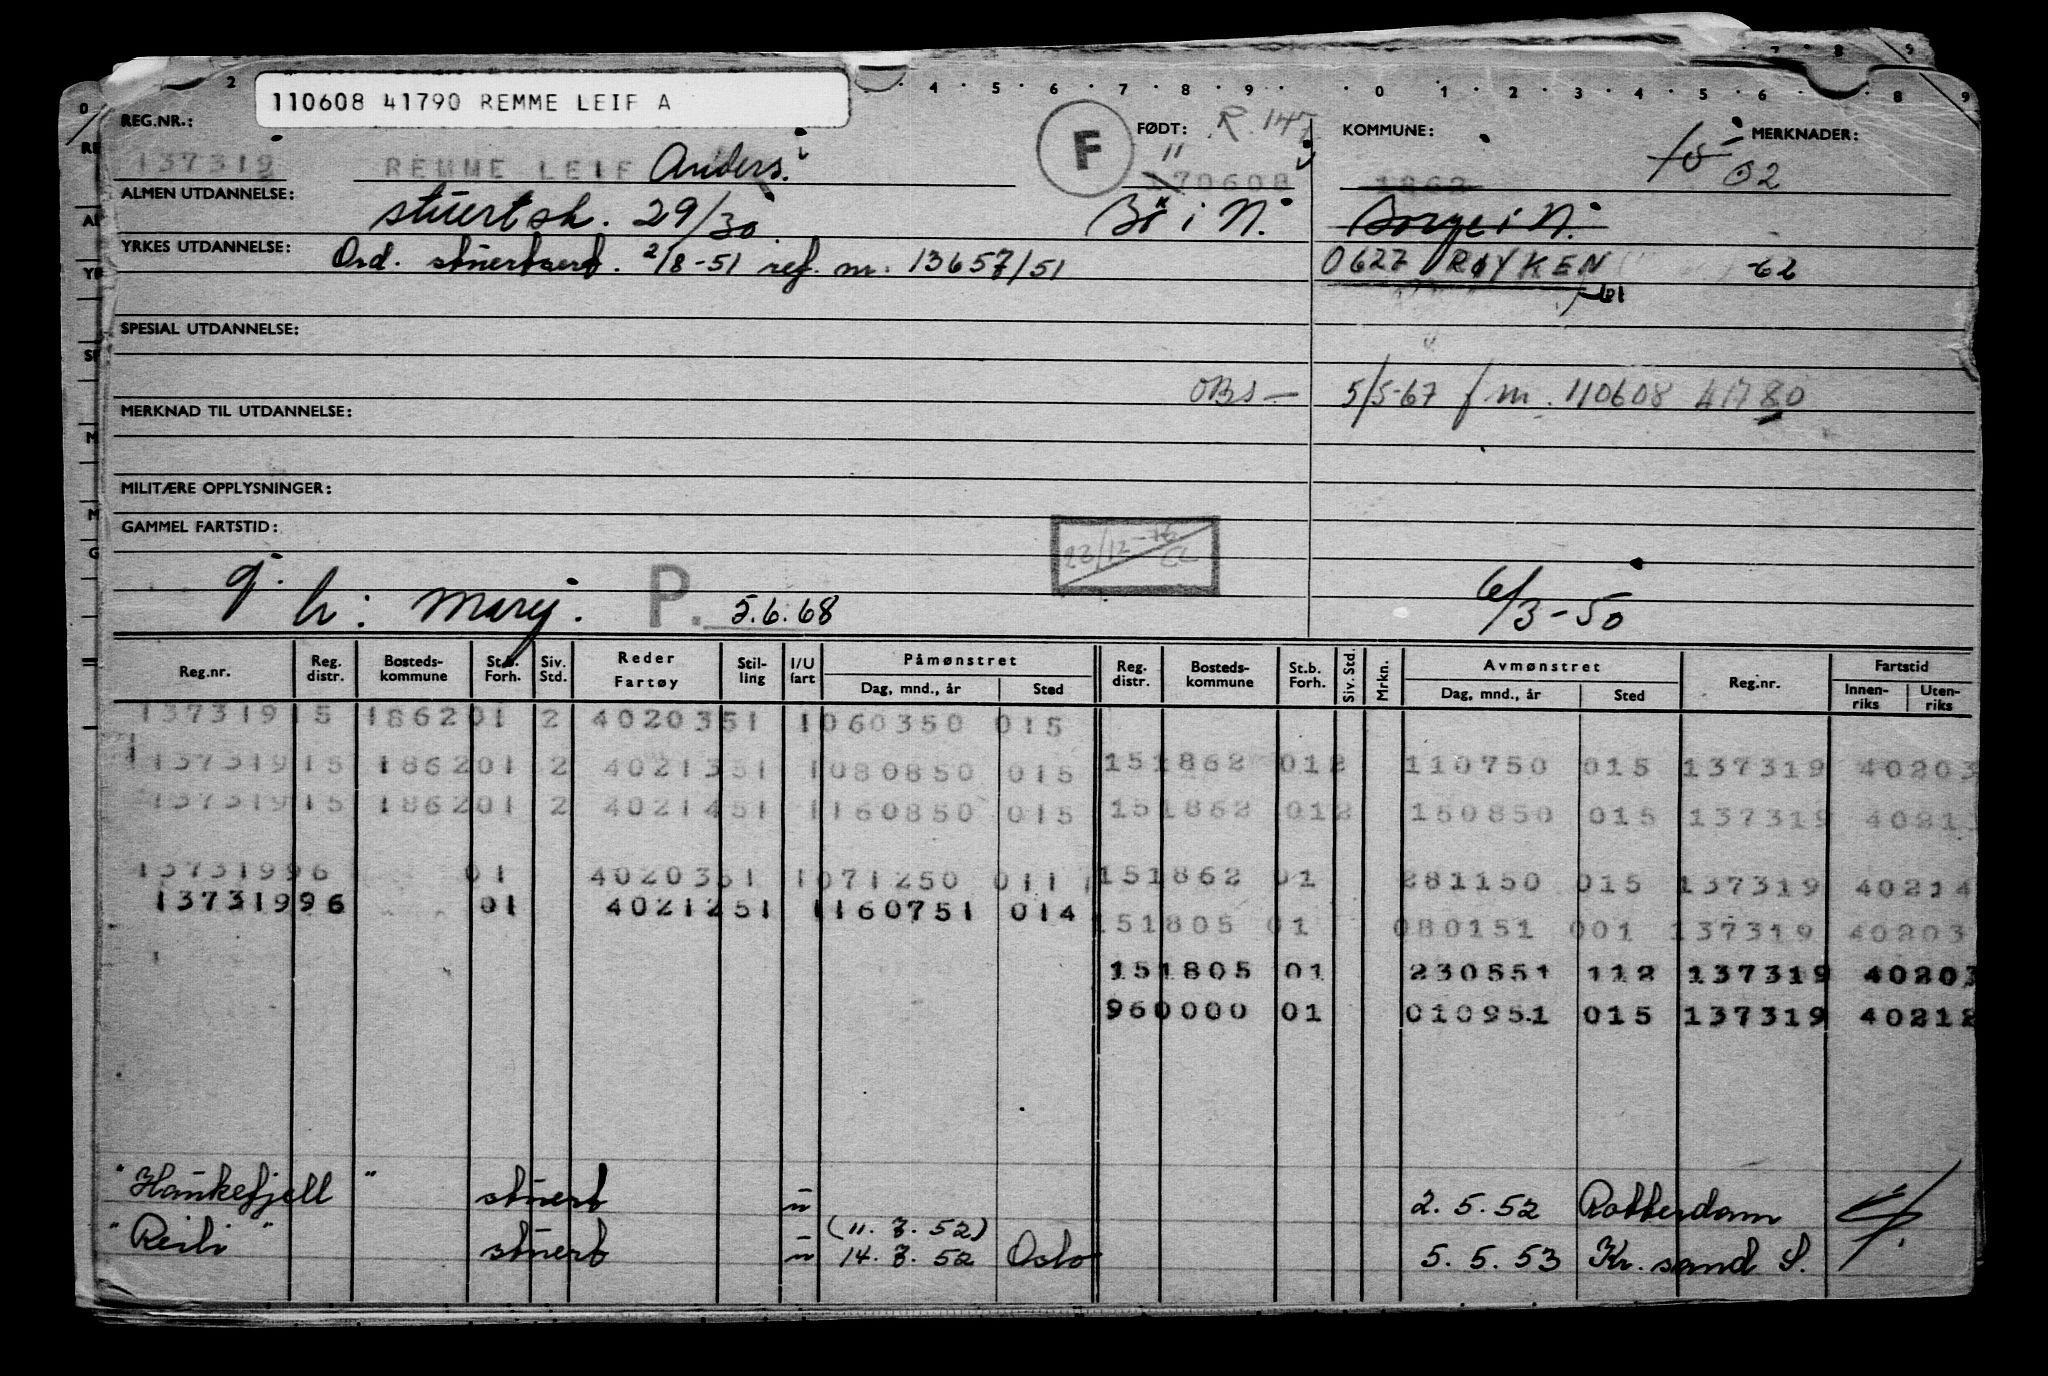 2 4 5 6 7 8 9 0 1 2 3 4 5 6 7 8 9
110608 41790 REMME LEIF A
REG.NR.: FØDT: R. 147 KOMMUNE: MERKNADER:
F
137319 REMME LEIF Anders. 11 170608 1862 02
ALMEN UTDANNELSE: stuertsk. 29/30 Bø i N. Borge i N.
YRKES UTDANNELSE: Ord. stuertsert. 2/8-51 ref. nr. 13657/51 0627 RØYKEN -62
SPESIAL UTDANNELSE:
OBS — 5/5-67 f.nr. 110608 41780
MERKNAD TIL UTDANNELSE:
MILITÆRE OPPLYSNINGER:
GAMMEL FARTSTID: 22/12-76
g. h: Mary. P. 5.6.68 6/3-50
Reg.nr. Reg. distr. Bosteds-kommune St.b. Forh. Siv. Std. Reder Fartøy Stil-ling I/U fart Påmønstret Dag, mnd., år Sted Reg. distr. Bosteds-kommune St.b. Forh. Siv. Std. Mrkn. Avmønstret Dag, mnd., år Sted Reg.nr. Fartstid Innen-riks Uten-riks
137319 15 1862 01 2 4020351 1 060350 015
137319 15 1862 01 2 4021351 1 080850 015 15 1862 01 2 110750 015 137319 40203
137319 15 1862 01 2 4021451 1 160850 015 15 1862 01 2 150850 015 137319 40213
137319 96 01 4020351 1 071250 011 15 1862 01 281150 015 137319 40214
137319 96 01 4021251 1 160751 014
15 1805 01 080151 001 137319 40203
15 1805 01 230551 112 137319 40203
96 0000 01 010951 015 137319 40212
"Haukefjell" stuert u 2.5.52 Rotterdam
(11.7.52)
"Reili" stuert u 14.7.52 Oslo 5.5.53 Kr.sand S.